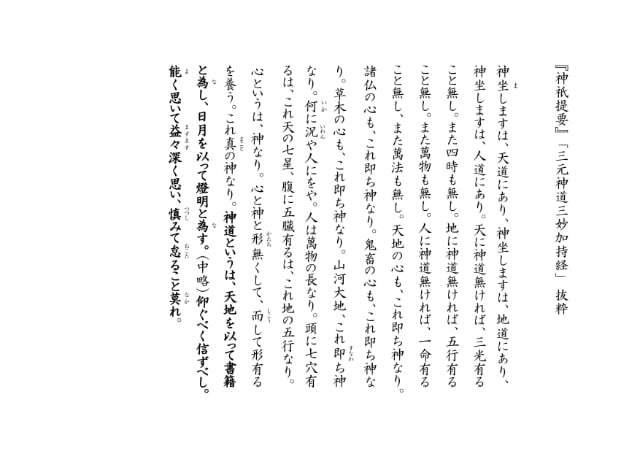 『神祇提要』「三元神道三妙加持経」 抜粋
神坐しますは、天道にあり、神坐しますは、地道にあり、
神坐しますは、人道にあり。天に神道無ければ、三光有る
こと無し。また四時も無し。地に神道無ければ、五行有る
こと無し。また萬物も無し。人に神道無ければ、一命有る
こと無し、また萬法も無し。天地の心も、これ即ち神なり。
諸仏の心も、これ即ち神なり。鬼畜の心も、これ即ち神な
り。草木の心も、これ即ち神なり。山河大地、これ即ち神
なり。何に況や人にをや。人は萬物の長なり。頭に七穴有
るは、これ天の七星、腹に五臓有るは、これ地の五行なり。
心というは、神なり。心と神と形無くして、而して形有る
を養う。これ真の神なり。神道というは、天地を以って書籍
と為し、日月を以って燈明と為す。（中略）仰ぐべく信ずべし。
能く思いて益々深く思い、慎みて怠ること莫れ。